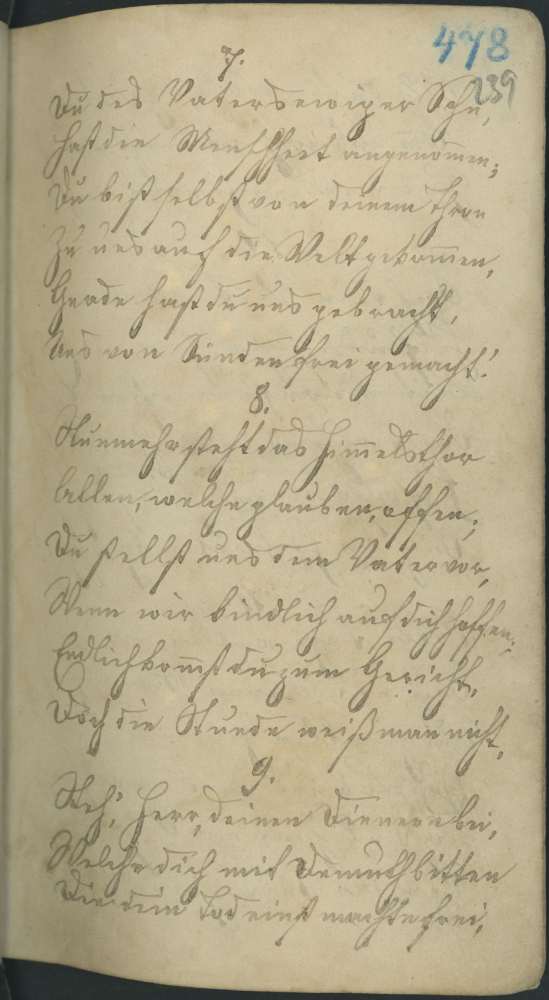 478
239
7.
Du des Vaters ewiger Sohn,
Hast die Menschheit angenom̄en;
Du bist selbst von deinem Thron
Zu uns auf die Welt gekom̄en,
Gnade hast du uns gebracht,
Uns von Sünden frei gemacht!
8.
Nunmehr steht das Him̄elsthor
Allen, welche glauben, offen;
Du stellst uns dem Vater vor,
Wenn wir kindlich auf dich hoffen;
Endlich kom̄st du zum Gericht,
Doch die Stunde weiß man nicht.
9.
Steh', Herr, deinen Dienern bei,
Welche dich mit Demuth bitten
Die dein Tod einst machte frei,